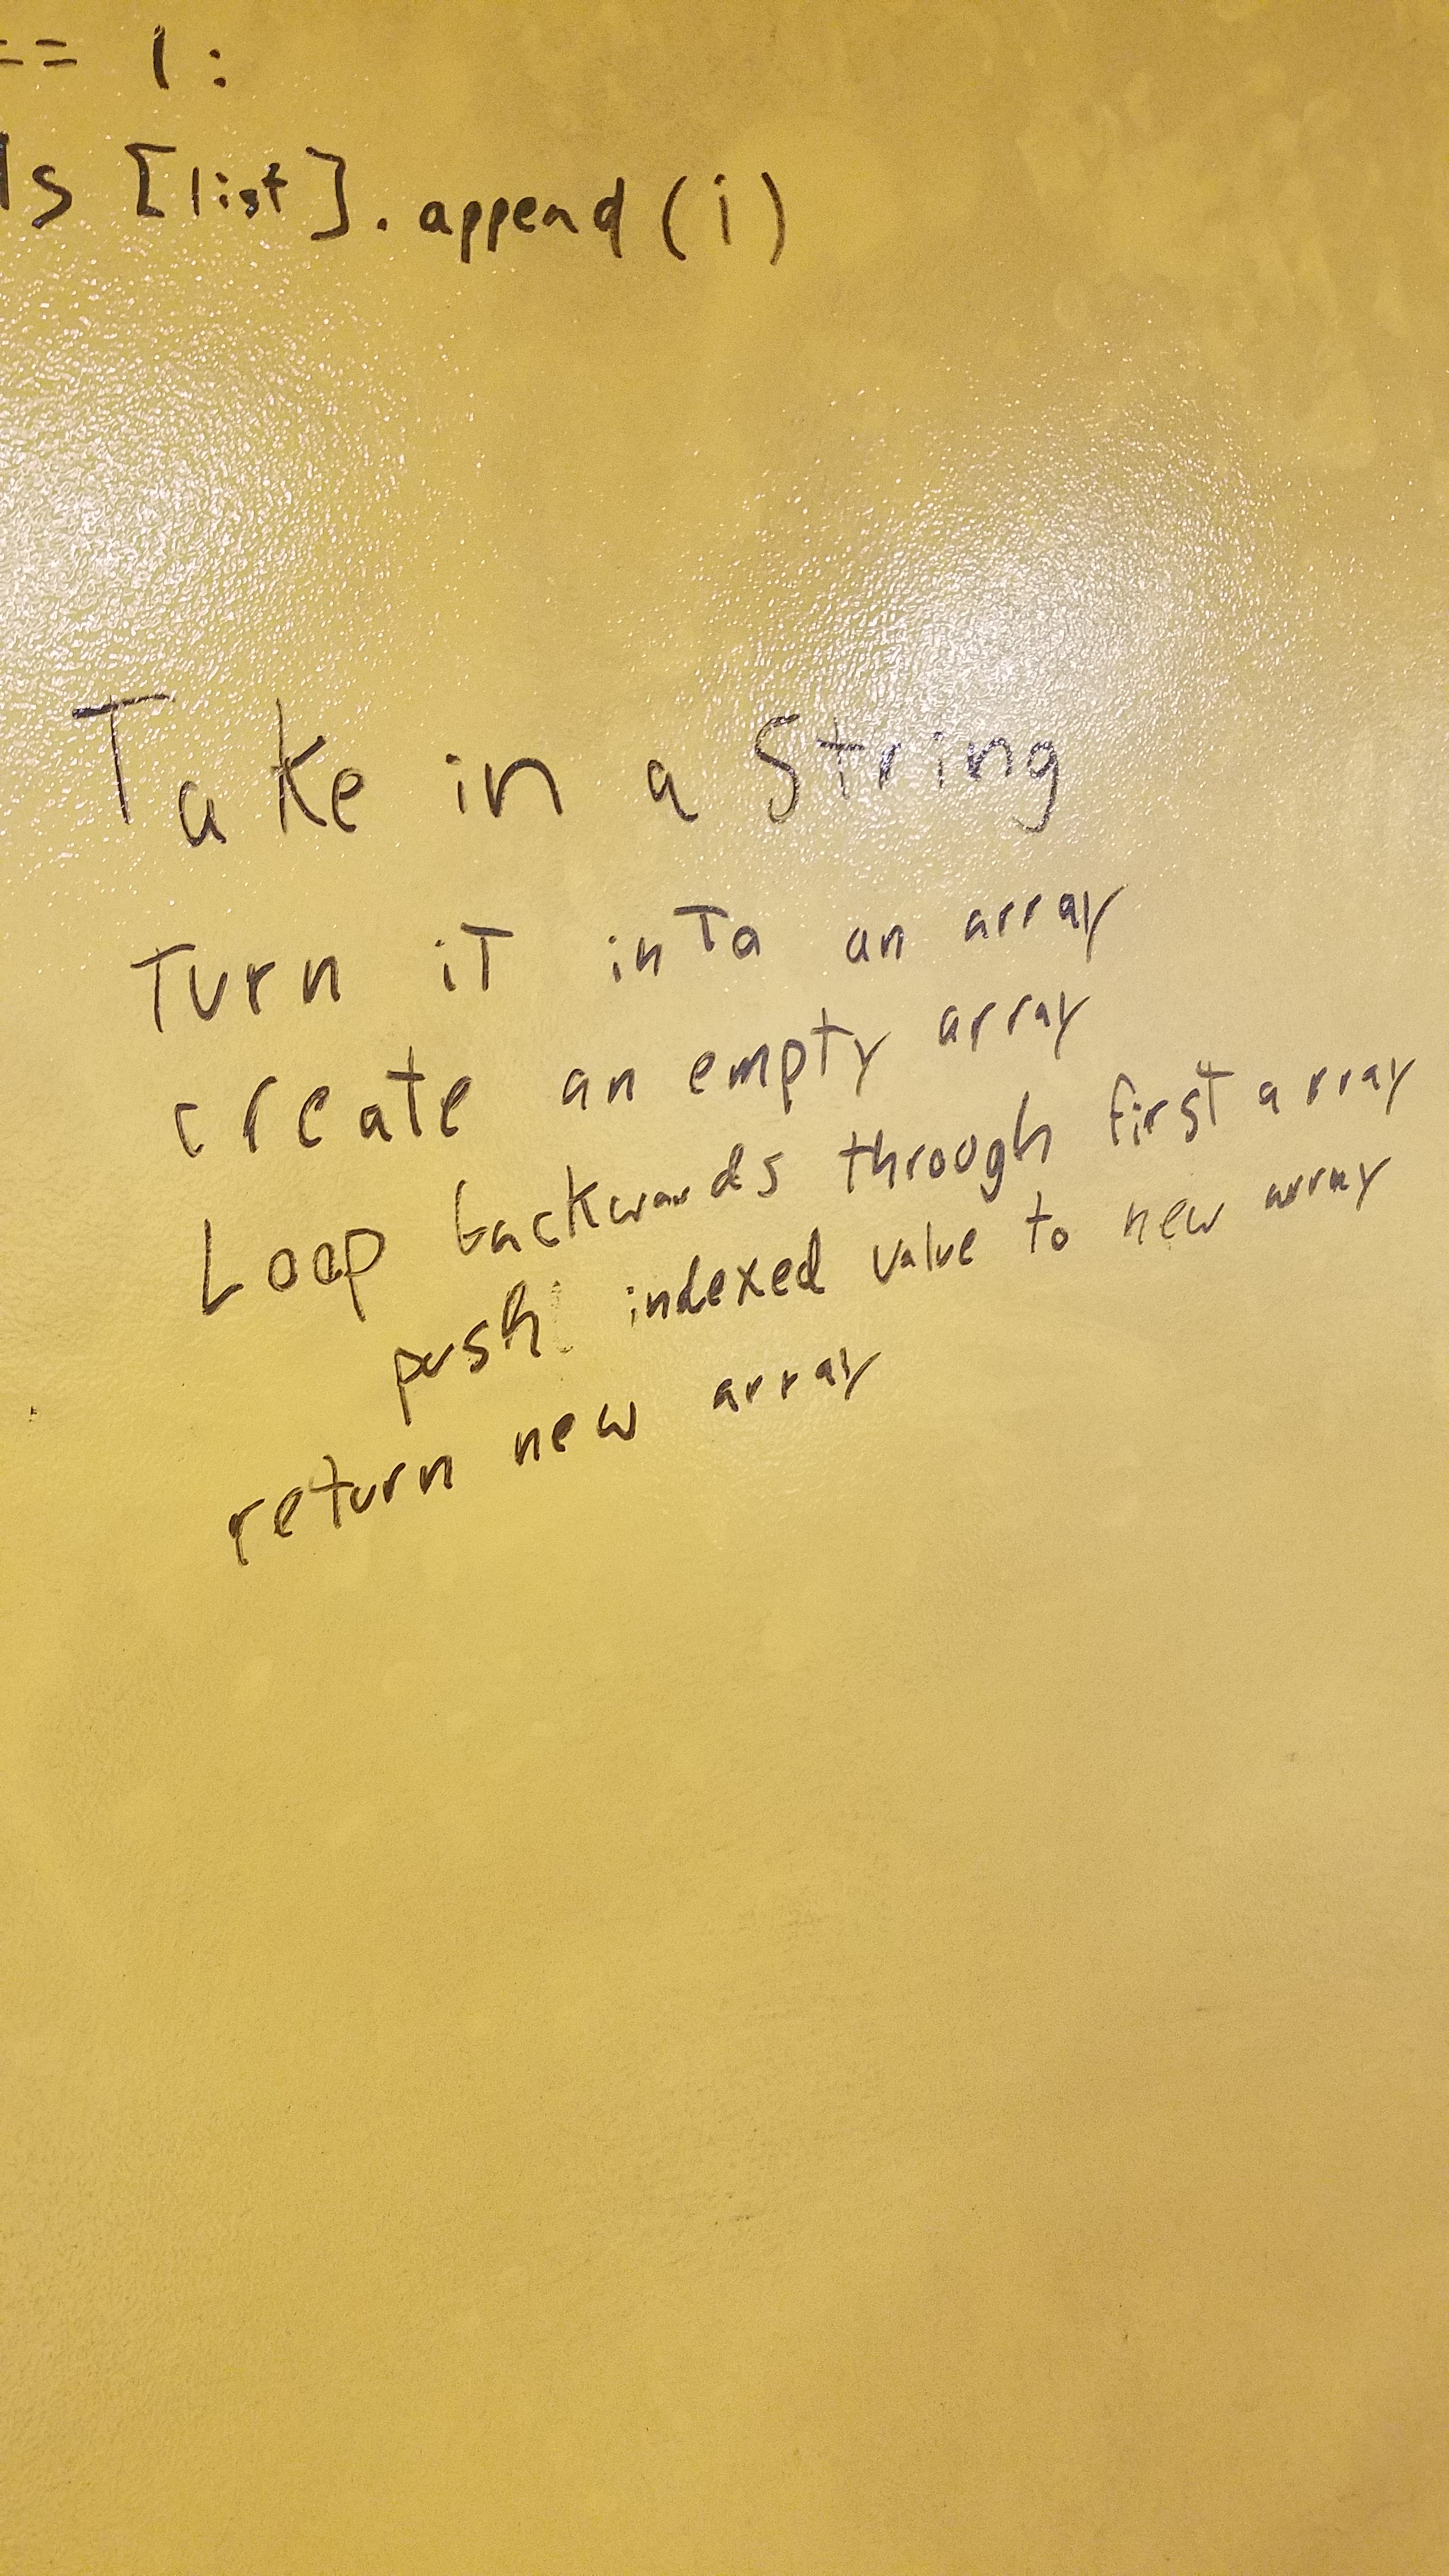 == 1:
ls [list].append(i)
Take in a String
Turn it into an array
create an empty array
Loop backwards through first array
push indexed value to new array
return new array